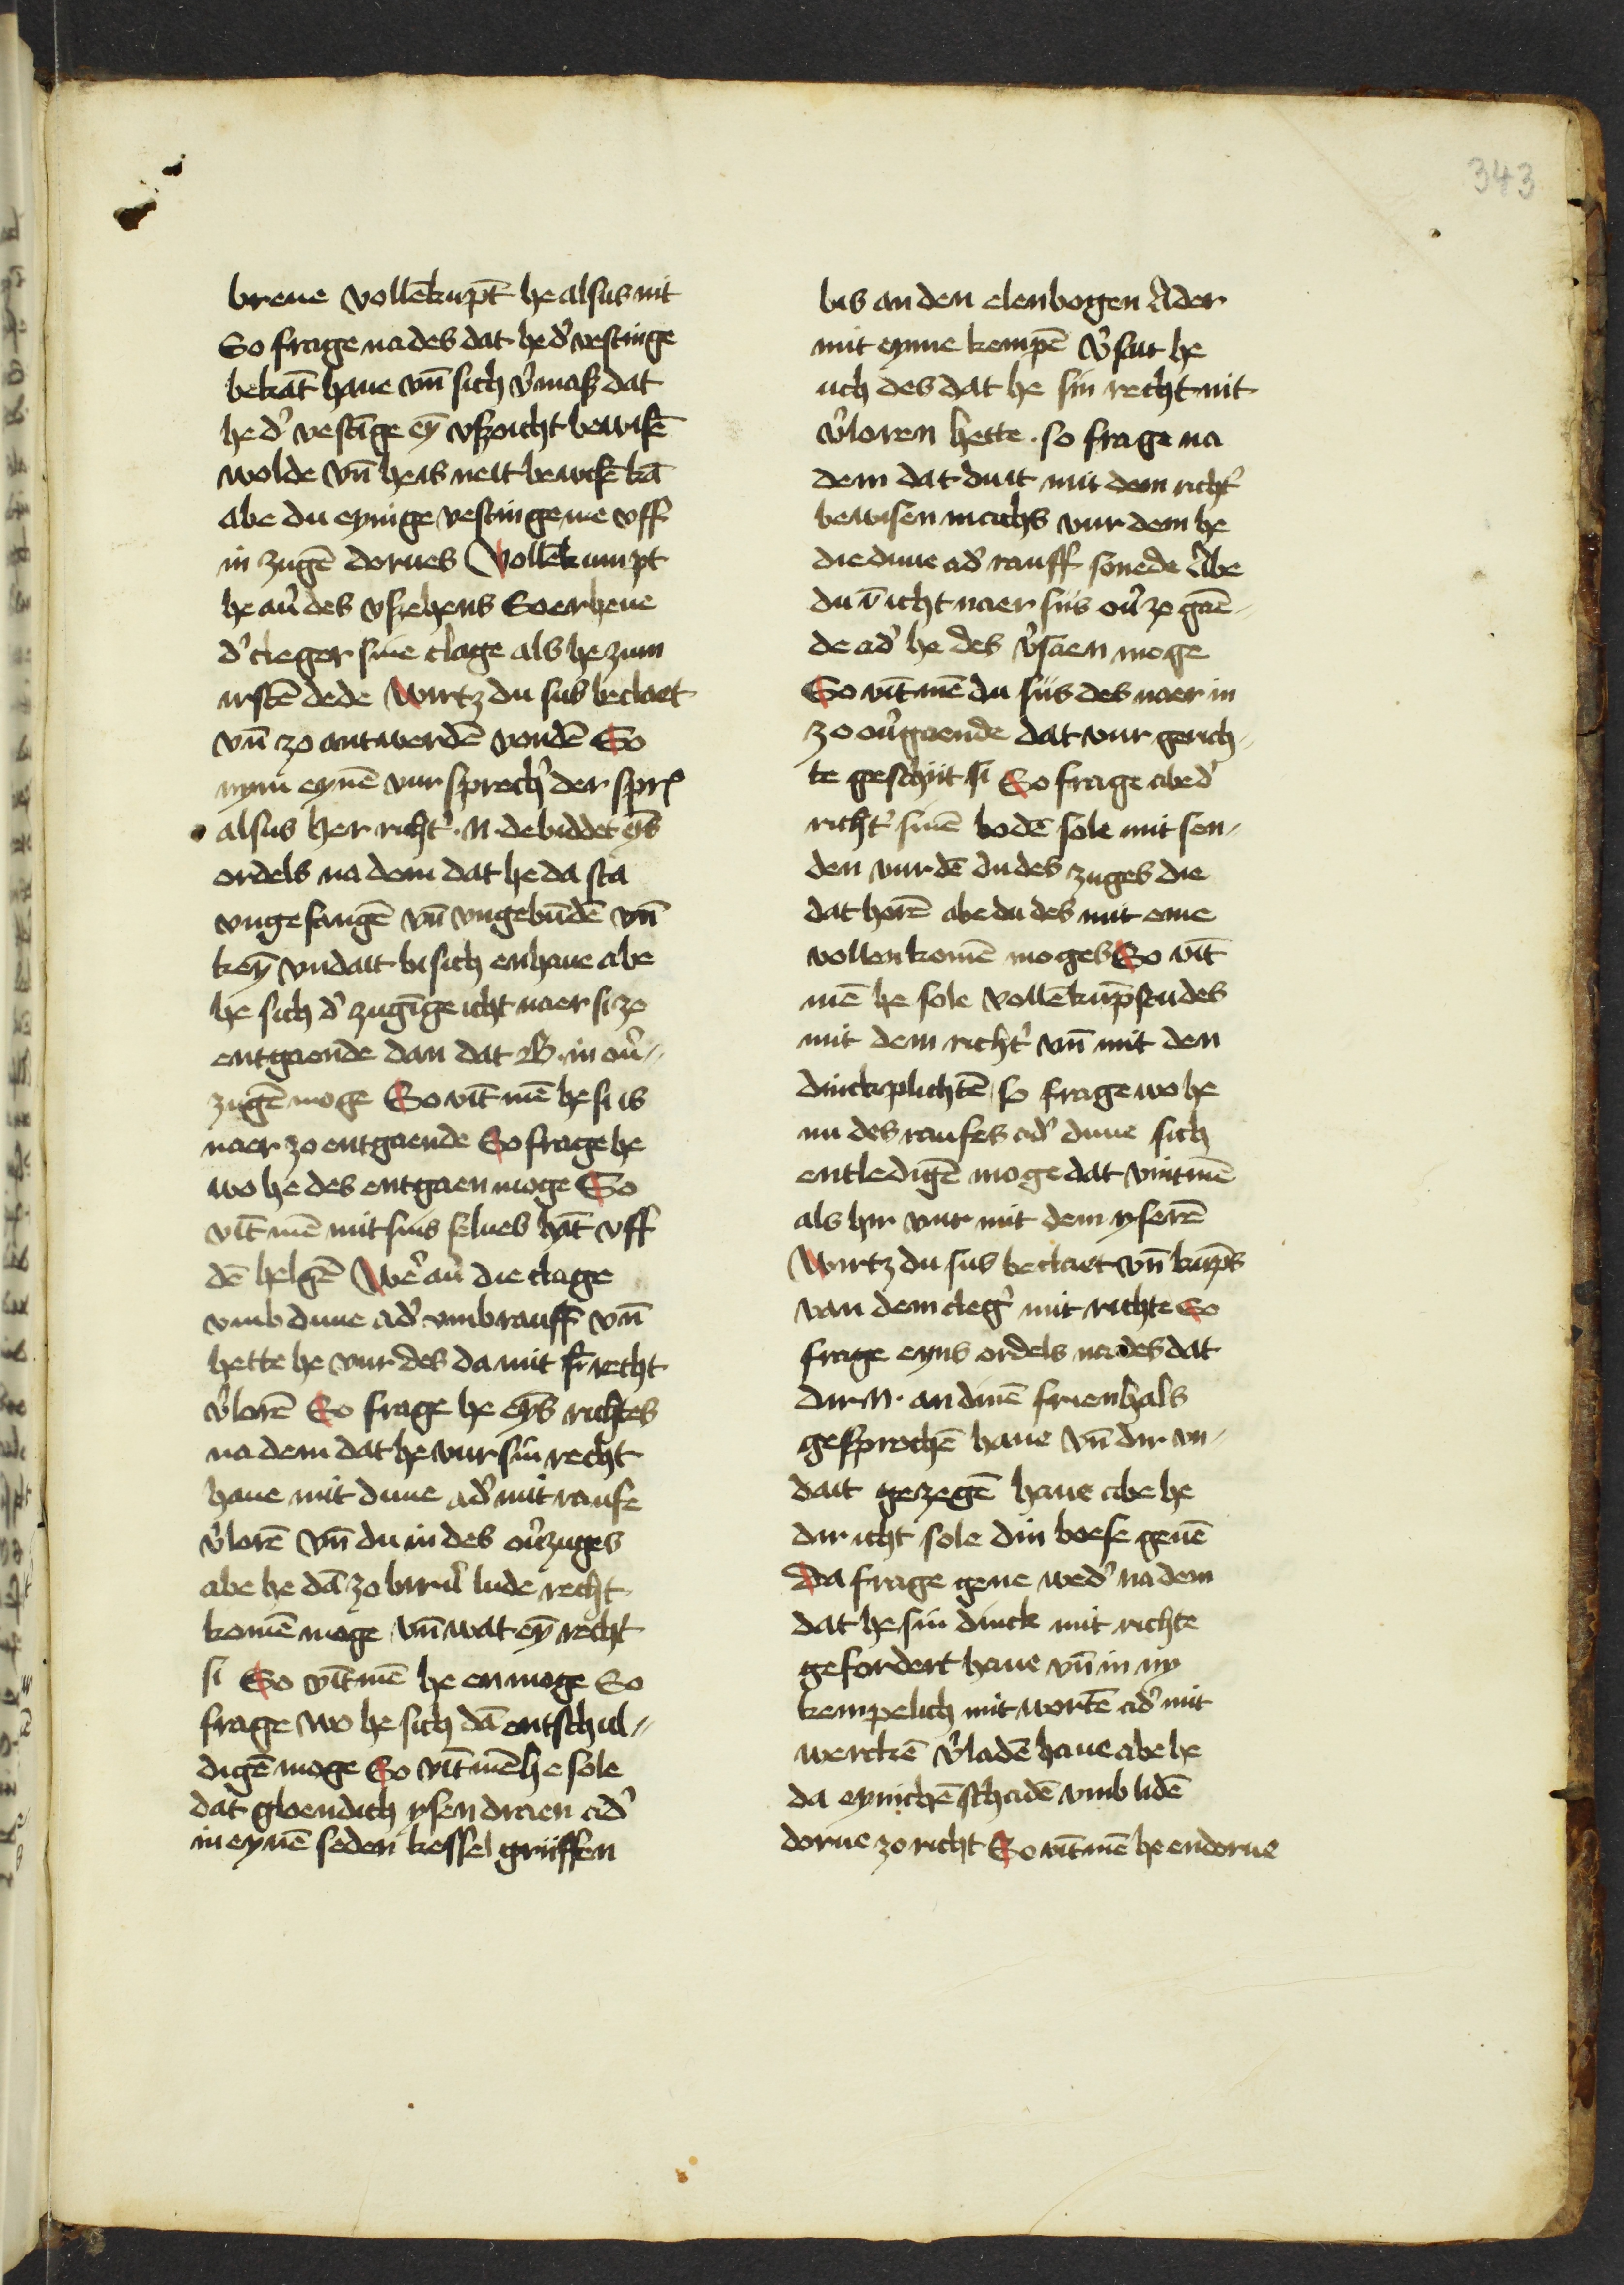 343
breue vollēkūpt he alsus nit
So frage na des dat he d' vestinge
bekāt haue vn̄ sich v'mass dat
he d' vestīge ey̅ vszoicht bewisē
wolde vn̄ he is nett bewisē kā
abe du eynige vestinge me vff
in zugē dorues Vollēkumpt
he au' des vszehens So erheue
d' cleger sine clage als he zum
irstē dede Wirtz du sus beclaet
vn̄ zo antwerdē vondē So
nym eynē vur sprech' der sp̄r
alsus her richt' · N · de biddet ey̅s
ordels na dem dat he da sta
vngefangē vn̄ vngebūdē vn̄
key̅ vndait bi sich enhaue abe
he sich d' zugīge icht naer si zo
entgaende dan dat B · in ou'-
zugē moge So vīt mē he si is
naer zo entgaende So frage he
wo he des entgaen moge So
vīt mē mit sīns selues hāt vff
dē helgē We' au' die clage
vmb duue ad' vmb rauff vn̄
hette he vur des da mit sī recht
v'lorē So frage he ey̅s richtes
na dem dat he vur sin recht
haue mit duue ad' mit raufe
v'lorē vn̄ du in des ou'zuges
abe he dā zo biru' lude recht
komē moge vn̄ wat ey̅ recht
si So vīt mē he en moge So
frage wo he sich dā entschul-
digē moge So vīt mē he sole
dat gloendich ysen draen ad'
in eynē seden kessel griiffen
bis an den elenbogen Ader
mit eyme kempē v'sait he
uch des dat he sin recht nit
v'loren hette · so frage na
dem dat duit mit dem richt'
bewisen machs vur dem he
die duue ad' rauff sonede Abe
du ī icht naer siis ou' zo gaē-
de ad' he des v'saen moge
So vīt mē du siis des naer in
zo ou'gaende dat vur gerich-
te geschiit si So frage abe d'
richt' sinē bodē sole mit sen-
den vur dē du des zuges die
dat horē abe du des mit eme
vollenkomē moges So vīt
mē he sole vollēkūpstu des
mit dem richt' vn̄ mit den
dinckplichtē so frage wo he
nu des raufes ad' duue sich
entledigē moge dat vint mē
als hir vur mit dem yserē
Wirtz du sus beclaet vn̄ kūpts
van dem cleg' mit richte So
frage eyns ordels na des dat
dir N · an dinē frienhals
gesprochē haue vn̄ dir vn-
dait gezegē haue abe he
dir icht sole din boese geuē
Da frage gene wed' na dem
dat he sin dinck mit richte
gefordert haue vn̄ in ny
kempelich mit wortē ad' mit
werckē v'ladē haue abe he
da eynichē schadē vmb lidē
dorue zo richt So vīt mē he endorue